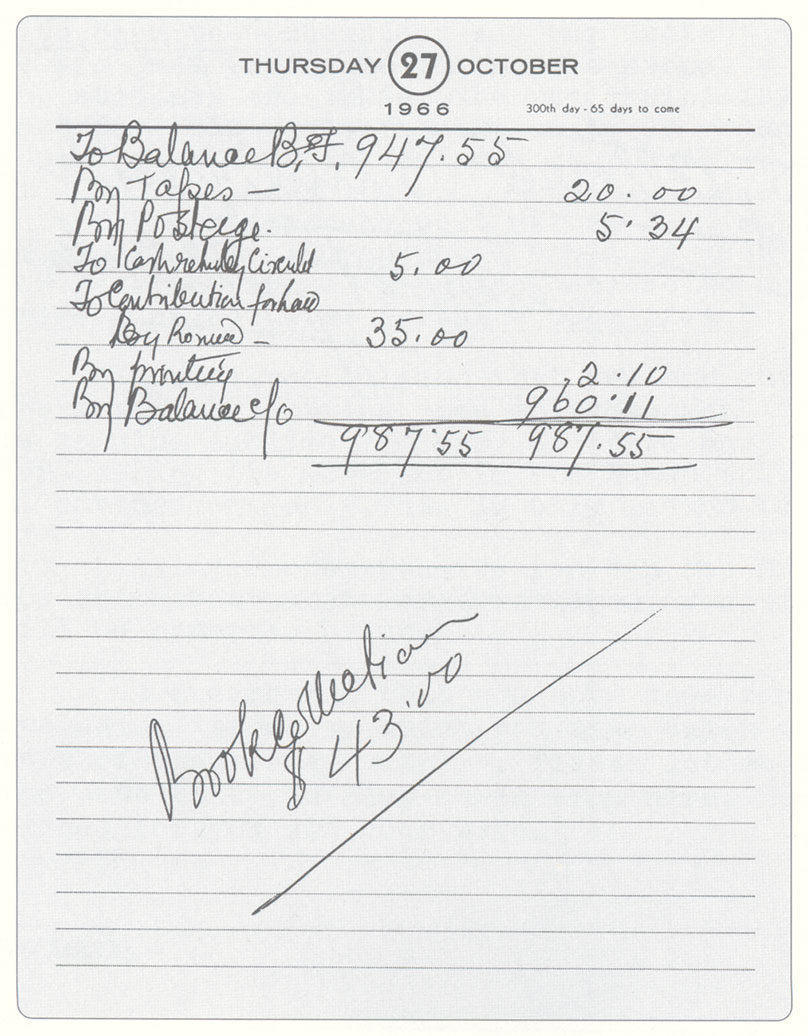 THURSDAY 27 OCTOBER
1966 300th day - 65 days to come
To Balance B.F. 947.55
By Tapes — 20.00
By Postage. 5.34
To Cash 5.00
To Contribution from
By 35.00
By printing 2.10
By Balance c/o 960.11
987.55 987.55
Book Collection
$ 43.00